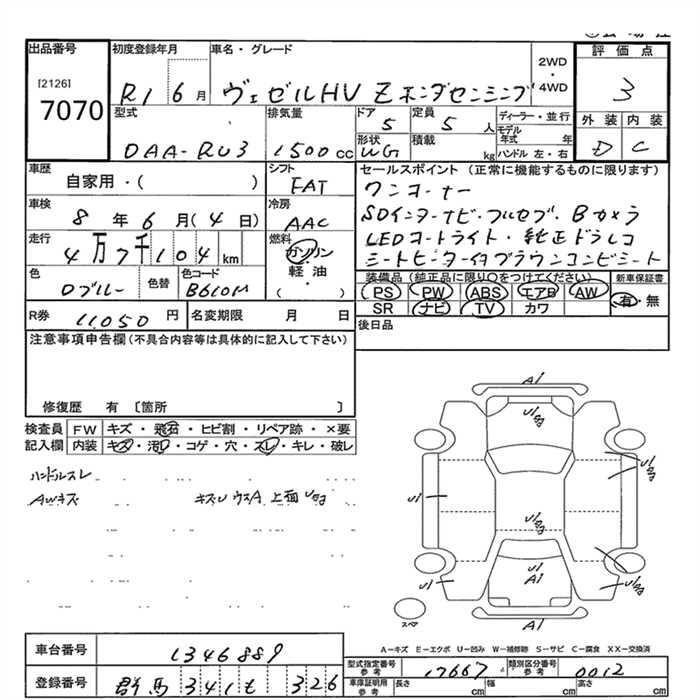 出品番号
[2126]
7070
初度登録年月
R1 6 月
車名・グレード
ヴェゼルHV Z ホンダセンシング
2WD
・
4WD
評価点
3
型式
DAA-RU3
排気量
1500 cc
ドア
5
定員
5 人
形状
WG
積載
kg
ディーラー・並行
モデル
年式 年
ハンドル 左・右
外装 内装
D C
車歴
自家用・( )
シフト
FAT
車検
8 年 6 月 ( 4 日)
冷房
AAC
走行
4万7千104 km
燃料
ガソリン
・
軽・油
( )
色
Dブルー
色替
色コード
B610M
セールスポイント (正常に機能するものに限ります)
ワンオーナー
SDインターナビ・フルセグ・Bカメラ
LEDオートライト・純正ドラレコ
シートヒーター付ブラウンコンビシート
装備品(純正品に限り○をつけてください)
PS PW ABS エアB AW
SR ナビ TV カワ
新車保証書
有・無
R券
11,050 円
名変期限 月 日
後日品
注意事項申告欄(不具合内容等は具体的に記入して下さい)
修復歴 有 〔箇所 〕
検査員 FW キズ・飛石・ヒビ割・リペア跡・×要
記入欄 内装 キズ・汚れ・コゲ・穴・スレ・キレ・破レ
ハンドルスレ
AWキズ
キズU ウスA 上面Uきょ
A1
U1
U1
U1
U1
A1
A1
スペ
A-キズ E-エクボ U-凹み W-補修跡 S-サビ C-腐食 XX-交換済
車台番号
1346889
登録番号
群馬 341 も 326
型式指定番号
参考
17667
類別区分番号
参考
0012
車庫証明用
参考
長さ cm
幅 cm
高さ cm